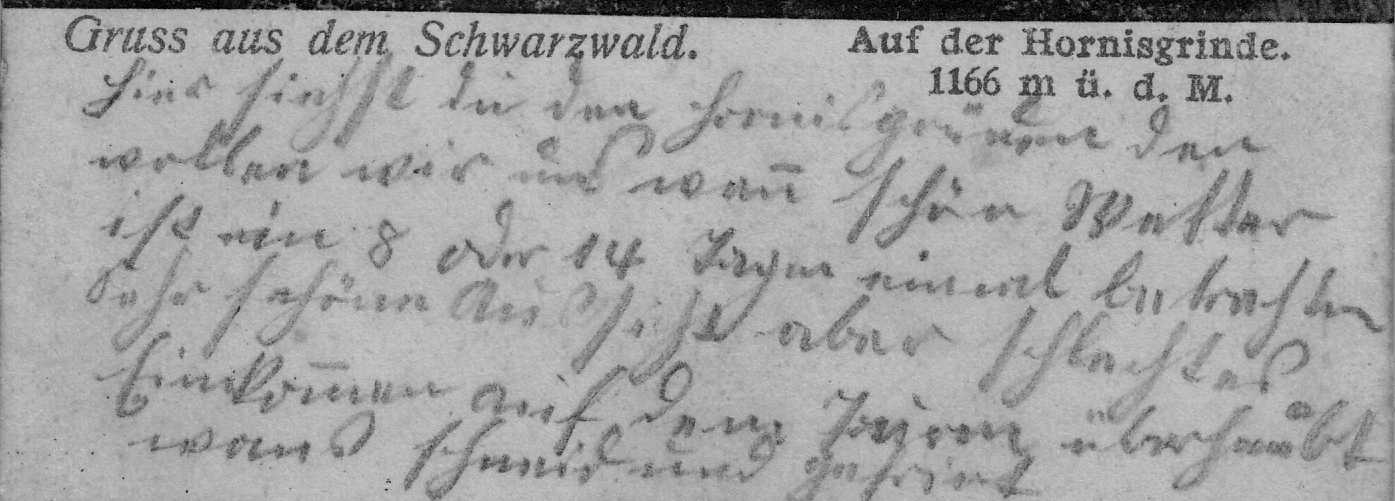 Gruss aus dem Schwarzwald. Auf der Hornisgrinde.
1166 m ü. d. M.
Hier siehst du den Hornisgrünen den
wollen wir uns wann schön Wetter
ist ein 8 oder 14 Tagen einmal betrachten
Sehr schöne Aussicht aber schlechtes
Einkommen auf dem überhaubt
wans schneid und gefriert